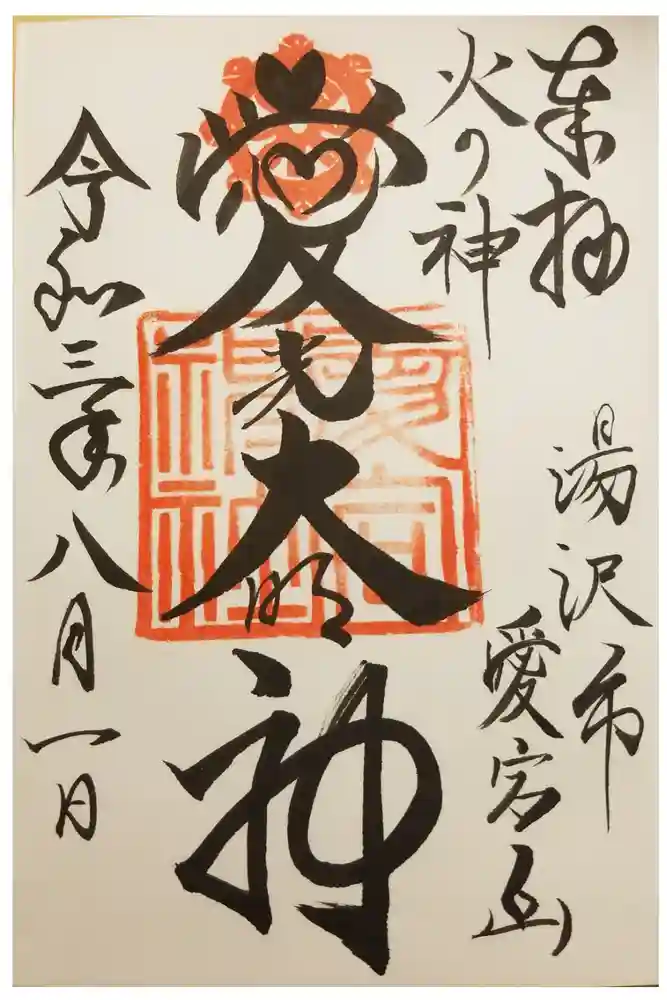 奉拝
火の神
湯沢市
愛宕山
愛光大明神
愛宕神社
令和三年八月一日